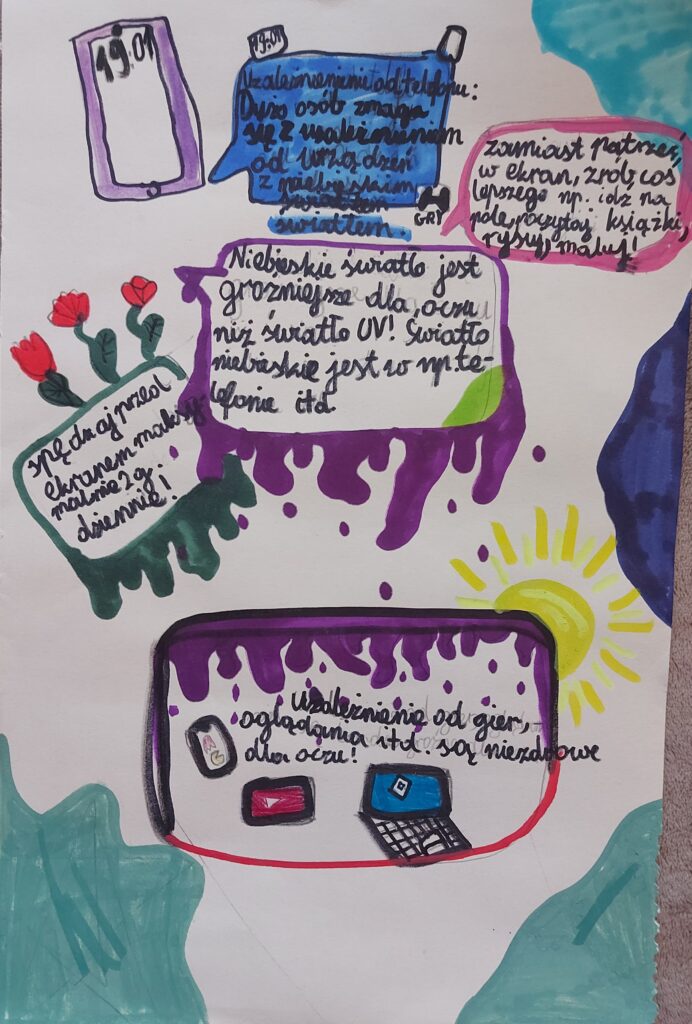 19:01
19:01
Uzależnienie od telefonu:
Dużo osób zmaga
się z uzależnieniem
od urządzeń
z niebieskim
światłem
światłem.
GRY
zamiast patrzeć,
w ekran, zrób coś
lepszego np. idź na
pole, poczytaj książki,
rysuj, maluj!
Niebieskie światło jest
groźniejsze dla, oczu
niż światło UV! Światło
niebieskie jest w np. te-
lefonie itd
spędzaj przed
ekranem maksy-
malnie 2 g.
dziennie!
uzależnienie od gier,
oglądania itd. są niezdrowe
dla oczu!